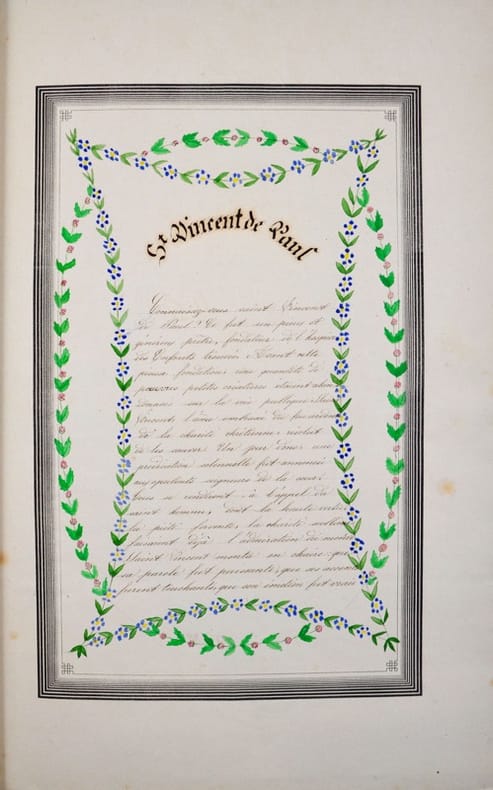 St Vincent de Paul
Connaissez-vous saint Vincent
de Paul? Ce fut un pieux et
généreux prêtre, fondateur de l'hospice
des Enfants trouvés. Avant cette
pieuse fondation une quantité de
pauvres petites créatures étaient aban
données sur la voie publique. Saint
Vincent, l'âme embrasé du feu
de la charité chrétienne, résolut
de les sauver. Un jour donc une
prédication solennelle fut annoncée
aux opulents seigneurs de la cour
tous se rendirent à l'appel du
saint homme, dont la haute vertu
la piété fervente, la charité
faisaient déjà l'admiration du monde
Saint Vincent monta en chaire; que
sa parole fut pressante, que ses accents
furent touchants, que son émotion fut vraie